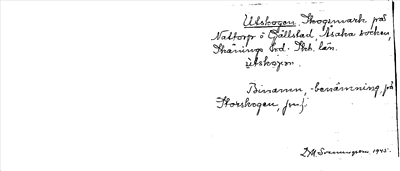 Utskogen. Skogsmark på
Naltorp i Fjällstad, Åsaka socken,
Skånings hd. Skb. län.
ùtskojen.
Binamn, -benämning, på
Storskogen, jmf:
D/M Svenungson 1945.